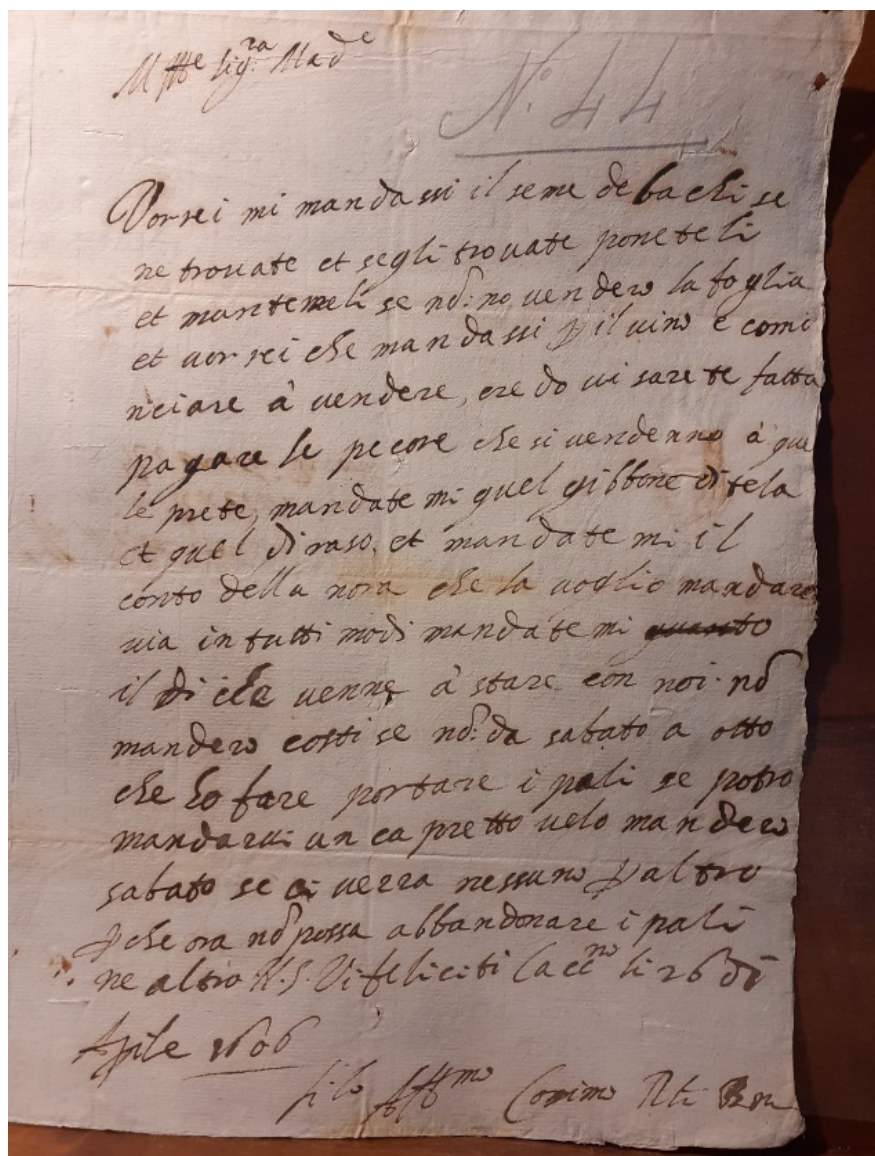 Sig.ra Mad.e
N.o 44
Vorrei mi mandassi il seme de bachi se
ne trovate et se gli trovate poneteli
et manteneli se nō: no vendero la foglia
et vorrei che mandassi p il vino e comi
nciare à vendere, credo vi sarete fatta
pagare le pecore che si vendenno à que
le prete, mandate mi quel gibbone di tela
et quel di raso, et mandate mi il
conto della nora che la voglio mandare
via in tutti modi mandate mi
il di che venne à stare con noi. nō
mandero costi se nō: da sabato a otto
che ho fare portare i pali se potro
mandarvi un capretto velo mandero
sabato se ci verra nessuno p altro
p che ora nō possa abbandonare i pali
ne altro N.S. Vi feliciti li 26 di
Aprile 1606
filo Aff.mo